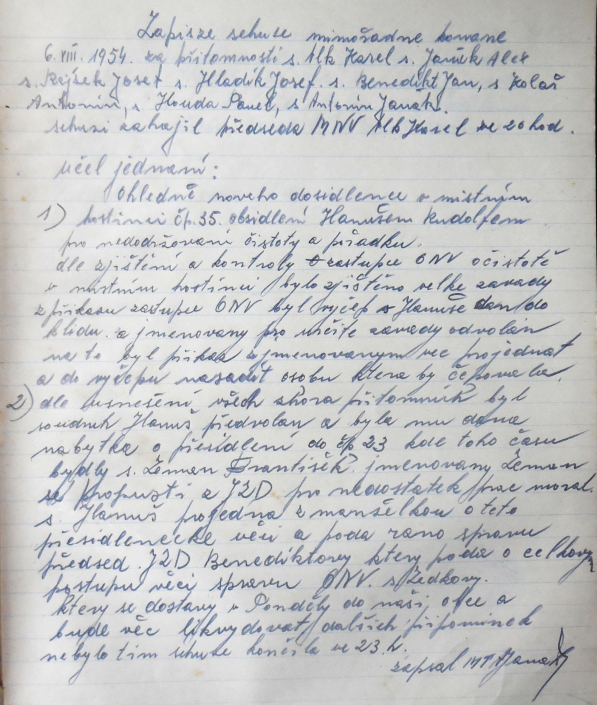 Zapis ze schuse mimořadne konane
6. VIII. 1954. za přitomnosti s. Vlk Karel s. Janák Alex
s. Rejšek Josef s. Hladík Josef. s. Benedikt Jan, s Kolář
Antonin, s Kouda Pavel, s Antonín Janák.
schuzi zahajil předseda MNV Vlk Karel ve 20 hod.
učel jednaní:
Ohledně noveho dosidlence v mistným
1) hostinci čp. 35. obsidlení Hanušem Rudolfem
pro nedodržovaní čistoty a pořadku.
dle zjištění a kontroly zastupce ONV o čistotě
v mistním hostinci bylo zjištěno velke zavady
z přikazu zastupce ONV byl vyčep s Hanuše dan do
klidu. a jmenovany pro určite zavady odvolan
na to byl přikaz z jmenovanym vec projednat
a do vyčepu nasadit osobu ktera by čepovala.
2) dle usnešení všech shora přitomník byl
soudruh Hanuš předvolan a byla mu dana
nabytka o přesidlení do čp 23 kde toho času
bydly s. Zeman František. jmenovany Zeman
se propusti a JZD pro nedostatek prac moral.
s. Hanuš projedna z manželkou o teto
přesidlenecke věci a poda rano spravu
předsed. JZD Benediktovy ktery poda o celkovym
postupu věci spravu ONV s Ředkovy.
ktery se dostavy v Ponděly do naši obce a
bude věc likvydovat dalších připominek
nebylo tim schuse končila ve 23. h.
zapsal MT Janák